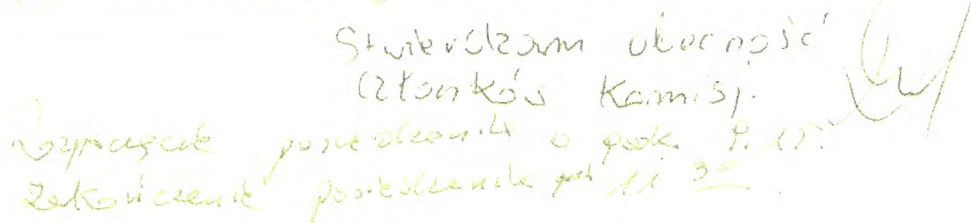 Stwierdzam obecność
Członków Komisj.
Rozpoczęcie posiedzenia o godz. 9.15.
Zakończenie posiedzenia god 11 30